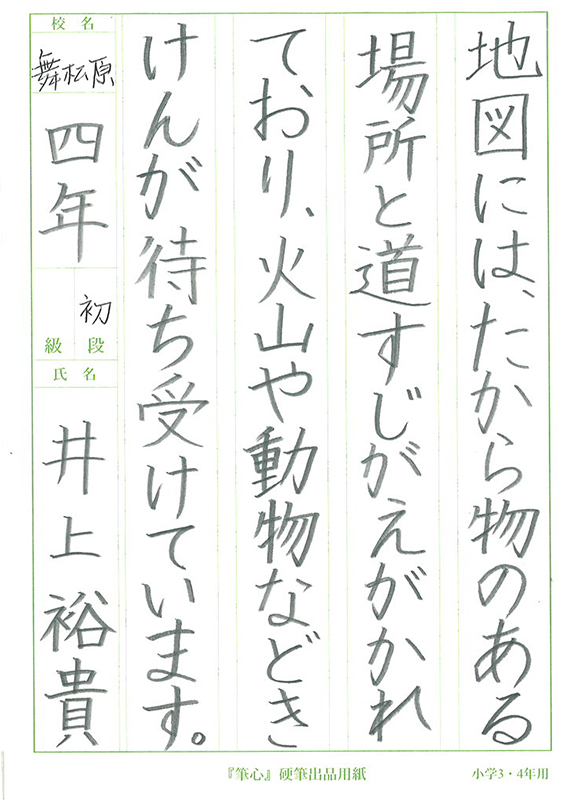 地図には、たから物のある
場所と道すじがえがかれ
ており、火山や動物などき
けんが待ち受けています。
校名
舞松原
四年
初
級段
氏名
井上裕貴
『筆心』硬筆出品用紙
小学3・4年用